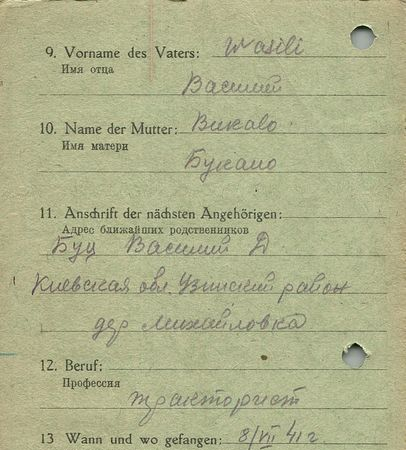 9. Vorname des Vaters: Wasili
Имя отца
Василий
10. Name der Mutter: Bukalo
Имя матери
Букало
11. Anschrift der nächsten Angehörigen:
Адрес ближайших родственников
Буц Василий Д
Киевская обл. Узинский район
дер Михайловка
12. Beruf:
Профессия
тракторист
13 Wann und wo gefangen: 8/VII 41 г.